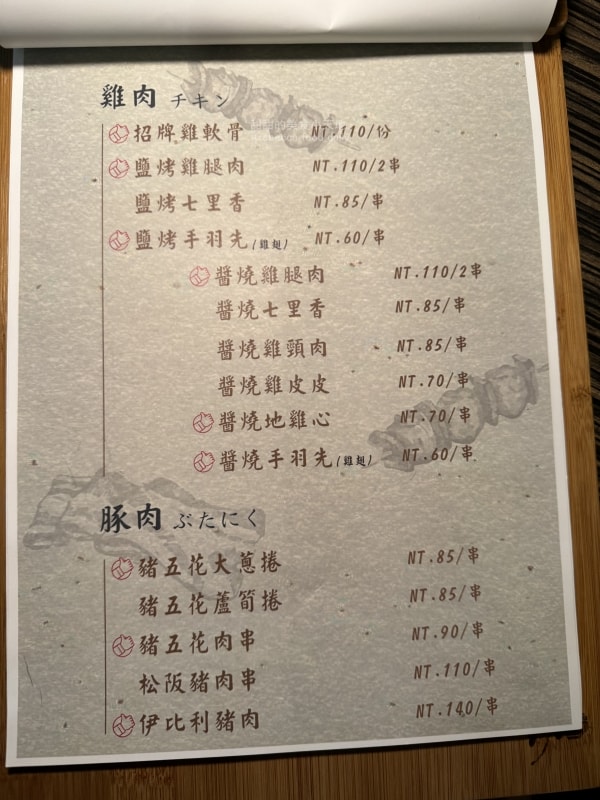 雞肉 チキン
招牌雞軟骨 NT.110/份
鹽烤雞腿肉 NT.110/2串
鹽烤七里香 NT.85/串
鹽烤手羽先(雞翅) NT.60/串
醬燒雞腿肉 NT.110/2串
醬燒七里香 NT.85/串
醬燒雞頸肉 NT.85/串
醬燒雞皮皮 NT.70/串
醬燒地雞心 NT.70/串
醬燒手羽先(雞翅) NT.60/串
豚肉 ぶたにく
豬五花大蔥捲 NT.85/串
豬五花蘆筍捲 NT.85/串
豬五花肉串 NT.90/串
松阪豬肉串 NT.110/串
伊比利豬肉 NT.140/串